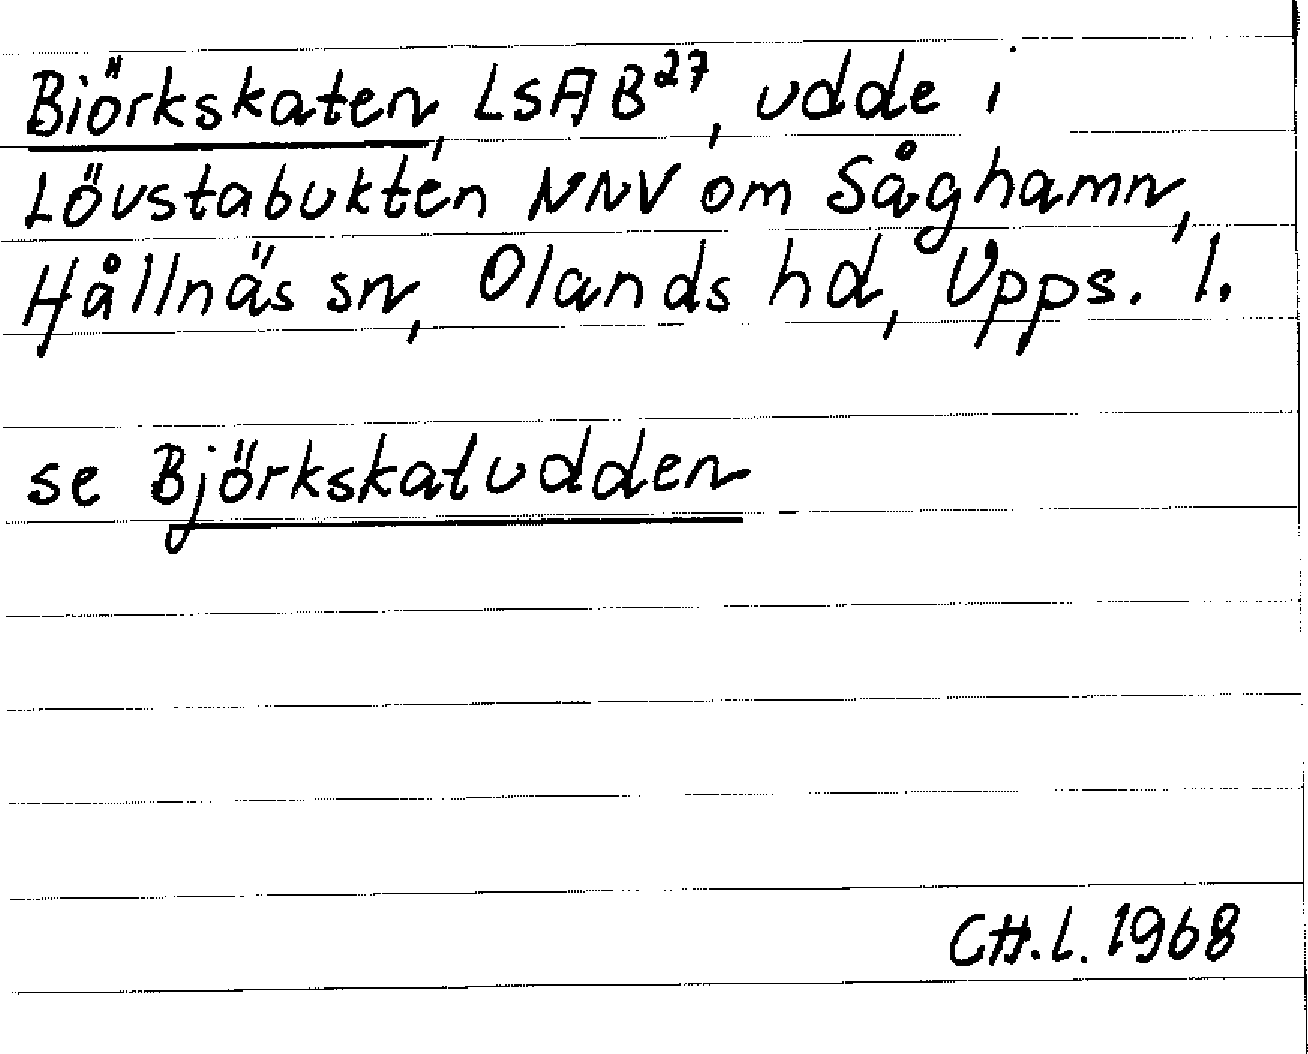 Biörkskaten, LSA B²⁷, udde i
Lövstabukten NNV om Såghamn,
Hållnäs sn, Olands hd, Upps. l.
se Björkskatudden
CH.L. 1968